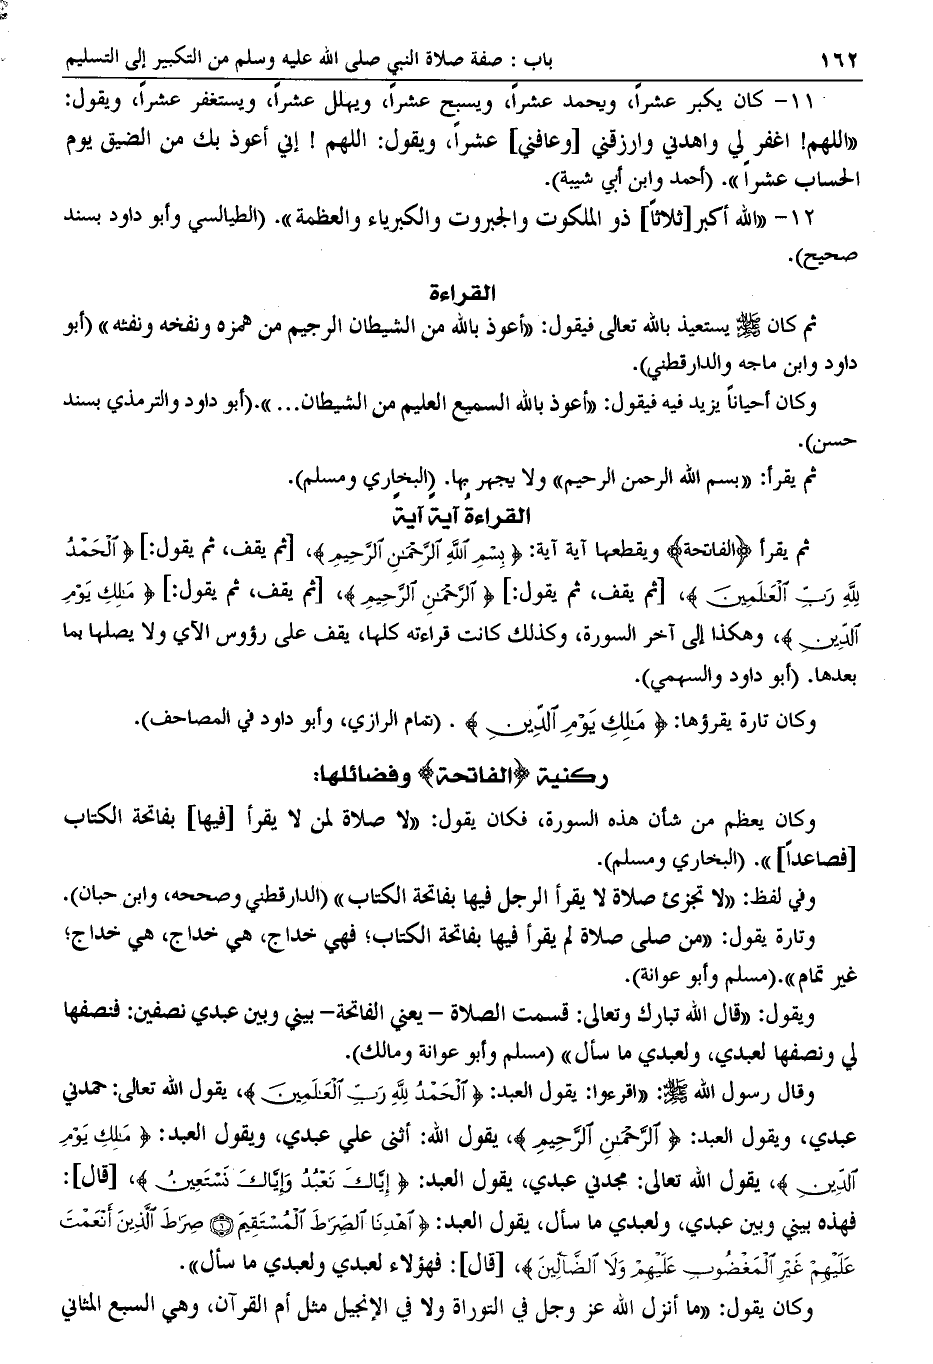 ١٦٢ باب : صفة صلاة النبي صلى الله عليه وسلم من التكبير إلى التسليم
١١- كان يكبر عشراً، ويحمد عشراً، ويسبح عشراً، ويهلل عشراً، ويستغفر عشراً، ويقول:
«اللهم! اغفر لي واهدني وارزقني [وعافني] عشراً، ويقول: اللهم ! إني أعوذ بك من الضيق يوم
الحساب عشراً». (أحمد وابن أبي شيبة).
١٢- «الله أكبر[ثلاثاً] ذو الملكوت والجبروت والكبرياء والعظمة». (الطيالسي وأبو داود بسند
صحيح).
القراءة
ثم كان ﷺ يستعيذ بالله تعالى فيقول: «أعوذ بالله من الشيطان الرجيم من همزه ونفخه ونفثه» (أبو
داود وابن ماجه والدارقطني).
وكان أحياناً يزيد فيه فيقول: «أعوذ بالله السميع العليم من الشيطان...».(أبو داود والترمذي بسند
حسن).
ثم يقرأ: «بسم الله الرحمن الرحيم» ولا يجهر بها. (البخاري ومسلم).
القراءة آيةً آيةً
ثم يقرأ ﴿الفاتحة﴾ ويقطعها آية آية: ﴿ بِسْمِ ٱللَّهِ ٱلرَّحْمَٰنِ ٱلرَّحِيمِ ﴾، [ثم يقف، ثم يقول:] ﴿ ٱلْحَمْدُ
لِلَّهِ رَبِّ ٱلْعَٰلَمِينَ ﴾، [ثم يقف، ثم يقول:] ﴿ ٱلرَّحْمَٰنِ ٱلرَّحِيمِ ﴾، [ثم يقف، ثم يقول:] ﴿ مَٰلِكِ يَوْمِ
ٱلدِّينِ ﴾، وهكذا إلى آخر السورة، وكذلك كانت قراءته كلها، يقف على رؤوس الآي ولا يصلها بما
بعدها. (أبو داود والسهمي).
وكان تارة يقرؤها: ﴿ مَٰلِكِ يَوْمِ ٱلدِّينِ ﴾ . (تمام الرازي، وأبو داود في المصاحف).
ركنية ﴿الفاتحة﴾ وفضائلها:
وكان يعظم من شأن هذه السورة، فكان يقول: «لا صلاة لمن لا يقرأ [فيها] بفاتحة الكتاب
[فصاعداً]». (البخاري ومسلم).
وفي لفظ: «لا تجزئ صلاة لا يقرأ الرجل فيها بفاتحة الكتاب» (الدارقطني وصححه، وابن حبان).
وتارة يقول: «من صلى صلاة لم يقرأ فيها بفاتحة الكتاب؛ فهي خداج، هي خداج، هي خداج؛
غير تمام».(مسلم وأبو عوانة).
ويقول: «قال الله تبارك وتعالى: قسمت الصلاة – يعني الفاتحة– بيني وبين عبدي نصفين: فنصفها
لي ونصفها لعبدي، ولعبدي ما سأل» (مسلم وأبو عوانة ومالك).
وقال رسول الله ﷺ: «اقرءوا: يقول العبد: ﴿ ٱلْحَمْدُ لِلَّهِ رَبِّ ٱلْعَٰلَمِينَ ﴾، يقول الله تعالى: حمدني
عبدي، ويقول العبد: ﴿ ٱلرَّحْمَٰنِ ٱلرَّحِيمِ ﴾، يقول الله: أثنى علي عبدي، ويقول العبد: ﴿ مَٰلِكِ يَوْمِ
ٱلدِّينِ ﴾، يقول الله تعالى: مجدني عبدي، يقول العبد: ﴿ إِيَّاكَ نَعْبُدُ وَإِيَّاكَ نَسْتَعِينُ ﴾، [قال]:
فهذه بيني وبين عبدي، ولعبدي ما سأل، يقول العبد: ﴿ ٱهْدِنَا ٱلصِّرَٰطَ ٱلْمُسْتَقِيمَ ۝٦ صِرَٰطَ ٱلَّذِينَ أَنْعَمْتَ
عَلَيْهِمْ غَيْرِ ٱلْمَغْضُوبِ عَلَيْهِمْ وَلَا ٱلضَّآلِّينَ ﴾، [قال]: فهؤلاء لعبدي ولعبدي ما سأل».
وكان يقول: «ما أنزل الله عز وجل في التوراة ولا في الإنجيل مثل أم القرآن، وهي السبع المثاني